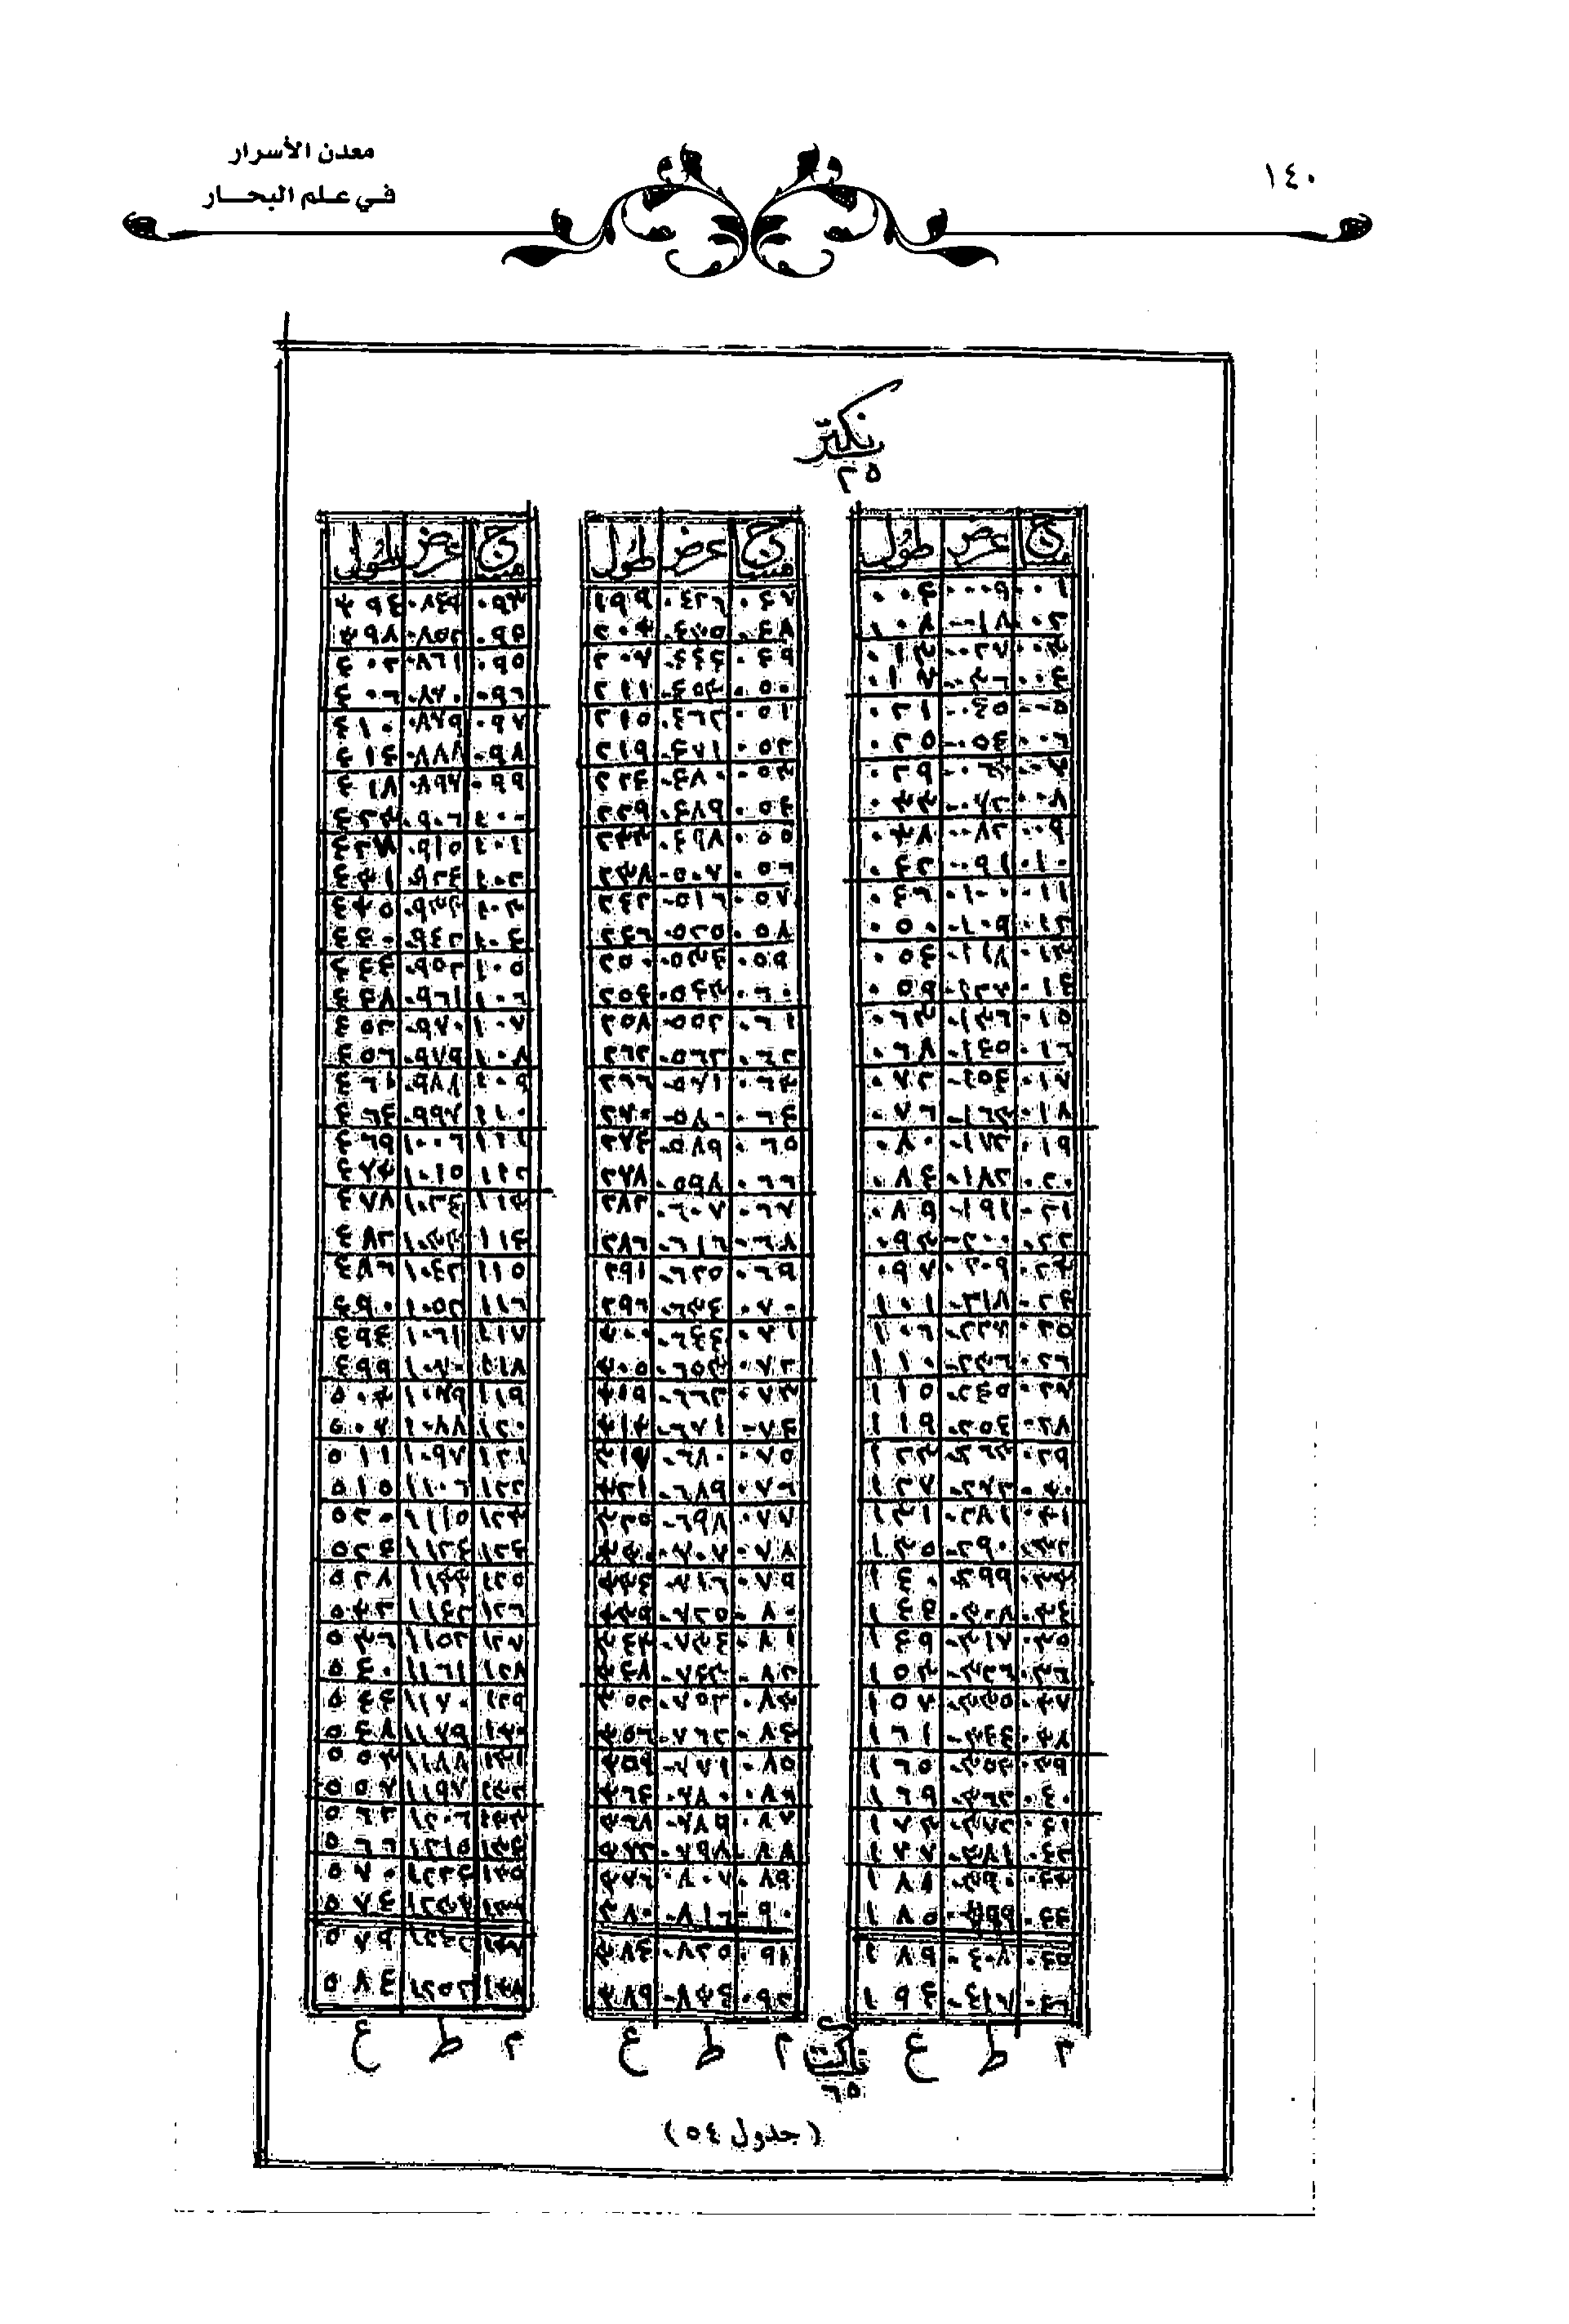 معدن الأسرار
في علم البحار
١٤٠
نكتر
٢٥
مساج عرض طول
٠٠١ ٠٠٠٩ ٠٠٤
٠٠٢ ٠٠١٨ ٠٠٨
٠٠٣ ٠٠٢٧ ٠١٣
٠٠٤ ٠٠٣٦ ٠١٧
٠٠٥ ٠٠٤٥ ٠٢١
٠٠٦ ٠٠٥٤ ٠٢٥
٠٠٧ ٠٠٦٣ ٠٢٩
٠٠٨ ٠٠٧٢ ٠٣٣
٠٠٩ ٠٠٨٢ ٠٣٨
٠١٠ ٠٠٩١ ٠٤٢
٠١١ ٠١٠٠ ٠٤٦
٠١٢ ٠١٠٩ ٠٥٠
٠١٣ ٠١١٨ ٠٥٤
٠١٤ ٠١٢٧ ٠٥٩
٠١٥ ٠١٣٦ ٠٦٣
٠١٦ ٠١٤٥ ٠٦٨
٠١٧ ٠١٥٤ ٠٧٢
٠١٨ ٠١٦٣ ٠٧٦
٠١٩ ٠١٧٢ ٠٨٠
٠٢٠ ٠١٨٢ ٠٨٤
٠٢١ ٠١٩١ ٠٨٩
٠٢٢ ٠٢٠٠ ٠٩٣
٠٢٣ ٠٢٠٩ ٠٩٧
٠٢٤ ٠٢١٨ ١٠١
٠٢٥ ٠٢٢٧ ١٠٦
٠٢٦ ٠٢٣٦ ١١٠
٠٢٧ ٠٢٤٥ ١١٥
٠٢٨ ٠٢٥٤ ١١٩
٠٢٩ ٠٢٦٣ ١٢٣
٠٣٠ ٠٢٧٢ ١٢٧
٠٣١ ٠٢٨١ ١٣١
٠٣٢ ٠٢٩٠ ١٣٥
٠٣٣ ٠٢٩٩ ١٤٠
٠٣٤ ٠٣٠٨ ١٤٤
٠٣٥ ٠٣١٧ ١٤٩
٠٣٦ ٠٣٢٦ ١٥٣
٠٣٧ ٠٣٣٥ ١٥٧
٠٣٨ ٠٣٤٤ ١٦١
٠٣٩ ٠٣٥٣ ١٦٥
٠٤٠ ٠٣٦٢ ١٦٩
٠٤١ ٠٣٧٢ ١٧٣
٠٤٢ ٠٣٨١ ١٧٧
٠٤٣ ٠٣٩٠ ١٨١
٠٤٤ ٠٣٩٩ ١٨٥
٠٤٥ ٠٤٠٨ ١٨٩
٠٤٦ ٠٤١٧ ١٩٤
م ط ع
مساج عرض طول
٠٤٧ ٠٤٢٦ ١٩٩
٠٤٨ ٠٤٣٥ ٢٠٣
٠٤٩ ٠٤٤٤ ٢٠٧
٠٥٠ ٠٤٥٣ ٢١١
٠٥١ ٠٤٦٢ ٢١٥
٠٥٢ ٠٤٧١ ٢١٩
٠٥٣ ٠٤٨٠ ٢٢٤
٠٥٤ ٠٤٨٩ ٢٢٩
٠٥٥ ٠٤٩٨ ٢٣٣
٠٥٦ ٠٥٠٧ ٢٣٨
٠٥٧ ٠٥١٦ ٢٤٢
٠٥٨ ٠٥٢٥ ٢٤٦
٠٥٩ ٠٥٣٤ ٢٥٠
٠٦٠ ٠٥٤٣ ٢٥٤
٠٦١ ٠٥٥٢ ٢٥٨
٠٦٢ ٠٥٦٢ ٢٦٢
٠٦٣ ٠٥٧١ ٢٦٦
٠٦٤ ٠٥٨٠ ٢٧٠
٠٦٥ ٠٥٨٩ ٢٧٤
٠٦٦ ٠٥٩٨ ٢٧٨
٠٦٧ ٠٦٠٧ ٢٨٢
٠٦٨ ٠٦١٦ ٢٨٦
٠٦٩ ٠٦٢٥ ٢٩١
٠٧٠ ٠٦٣٤ ٢٩٦
٠٧١ ٠٦٤٤ ٣٠٠
٠٧٢ ٠٦٥٣ ٣٠٥
٠٧٣ ٠٦٦٢ ٣٠٩
٠٧٤ ٠٦٧١ ٣١٣
٠٧٥ ٠٦٨٠ ٣١٧
٠٧٦ ٠٦٨٩ ٣٢١
٠٧٧ ٠٦٩٨ ٣٢٥
٠٧٨ ٠٧٠٧ ٣٣٠
٠٧٩ ٠٧١٦ ٣٣٤
٠٨٠ ٠٧٢٥ ٣٣٩
٠٨١ ٠٧٣٤ ٣٤٣
٠٨٢ ٠٧٤٣ ٣٤٨
٠٨٣ ٠٧٥٢ ٣٥٢
٠٨٤ ٠٧٦٢ ٣٥٦
٠٨٥ ٠٧٧١ ٣٥٩
٠٨٦ ٠٧٨٠ ٣٦٤
٠٨٧ ٠٧٨٩ ٣٦٨
٠٨٨ ٠٧٩٨ ٣٧٢
٠٨٩ ٠٨٠٧ ٣٧٦
٠٩٠ ٠٨١٦ ٣٨٠
٠٩١ ٠٨٢٥ ٣٨٤
٠٩٢ ٠٨٣٤ ٣٨٩
م ط ع
مساج عرض طول
٠٩٣ ٠٨٤٣ ٣٩٤
٠٩٥ ٠٨٥٢ ٣٩٨
٠٩٥ ٠٨٦١ ٤٠٢
٠٩٦ ٠٨٧٠ ٤٠٦
٠٩٧ ٠٨٧٩ ٤١٠
٠٩٨ ٠٨٨٨ ٤١٤
٠٩٩ ٠٨٩٧ ٤١٨
١٠٠ ٠٩٠٦ ٤٢٣
١٠١ ٠٩١٥ ٤٢٧
١٠٢ ٠٩٢٤ ٤٣١
١٠٣ ٠٩٣٣ ٤٣٥
١٠٤ ٠٩٤٢ ٤٤٠
١٠٥ ٠٩٥٢ ٤٤٤
١٠٦ ٠٩٦١ ٤٤٨
١٠٧ ٠٩٧٠ ٤٥٢
١٠٨ ٠٩٧٩ ٤٥٦
١٠٩ ٠٩٨٨ ٤٦١
١١٠ ٠٩٩٧ ٤٦٤
١١١ ١٠٠٦ ٤٦٩
١١٢ ١٠١٥ ٤٧٣
١١٣ ١٠٢٤ ٤٧٨
١١٤ ١٠٣٣ ٤٨٢
١١٥ ١٠٤٢ ٤٨٦
١١٦ ١٠٥٢ ٤٩٠
١١٧ ١٠٦١ ٤٩٤
١١٨ ١٠٧٠ ٤٩٩
١١٩ ١٠٧٩ ٥٠٣
١٢٠ ١٠٨٨ ٥٠٧
١٢١ ١٠٩٧ ٥١١
١٢٢ ١١٠٦ ٥١٥
١٢٣ ١١١٥ ٥٢٠
١٢٤ ١١٢٤ ٥٢٤
١٢٥ ١١٣٣ ٥٢٨
١٢٦ ١١٤٢ ٥٣٢
١٢٧ ١١٥٢ ٥٣٦
١٢٨ ١١٦١ ٥٤٠
١٢٩ ١١٧٠ ٥٤٤
١٣٠ ١١٧٩ ٥٤٨
١٣١ ١١٨٨ ٥٥٣
١٣٢ ١١٩٧ ٥٥٧
١٣٣ ١٢٠٦ ٥٦٢
١٣٤ ١٢١٥ ٥٦٦
١٣٥ ١٢٢٤ ٥٧٠
١٣٦ ١٢٣٣ ٥٧٤
١٣٧ ١٢٤٢ ٥٧٩
١٣٨ ١٢٥٢ ٥٨٤
م ط ع
٦٥
(جدول ٥٤)